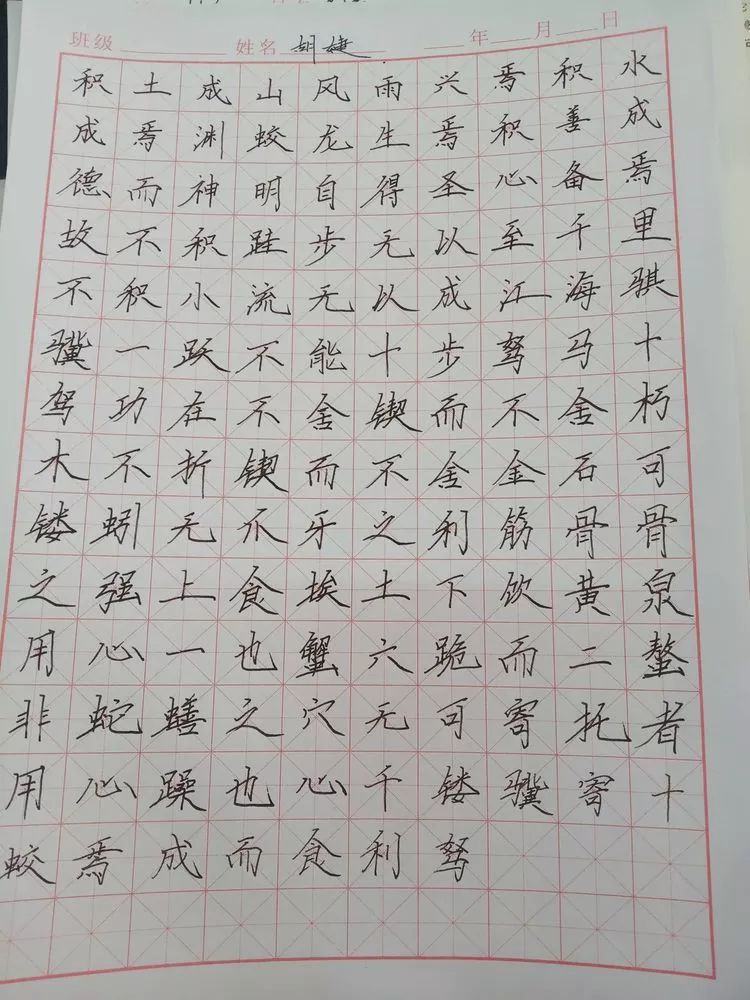 班级 姓名 胡婕 年 月 日
积土成山风雨兴焉积水
成焉渊蛟龙生焉积善成
德而神明自得圣心备焉
故不积跬步无以至千里
不积小流无以成江海骐
骥一跃不能十步驽马十
驾功在不舍锲而不舍朽
木不折锲而不舍金石可
镂蚓无爪牙之利筋骨骨
之强上食埃土下饮黄泉
用心一也蟹六跪而二螯
非蛇蟮之穴无可寄托者
用心躁也心千镂骥寄十
蛟焉成而食利驽